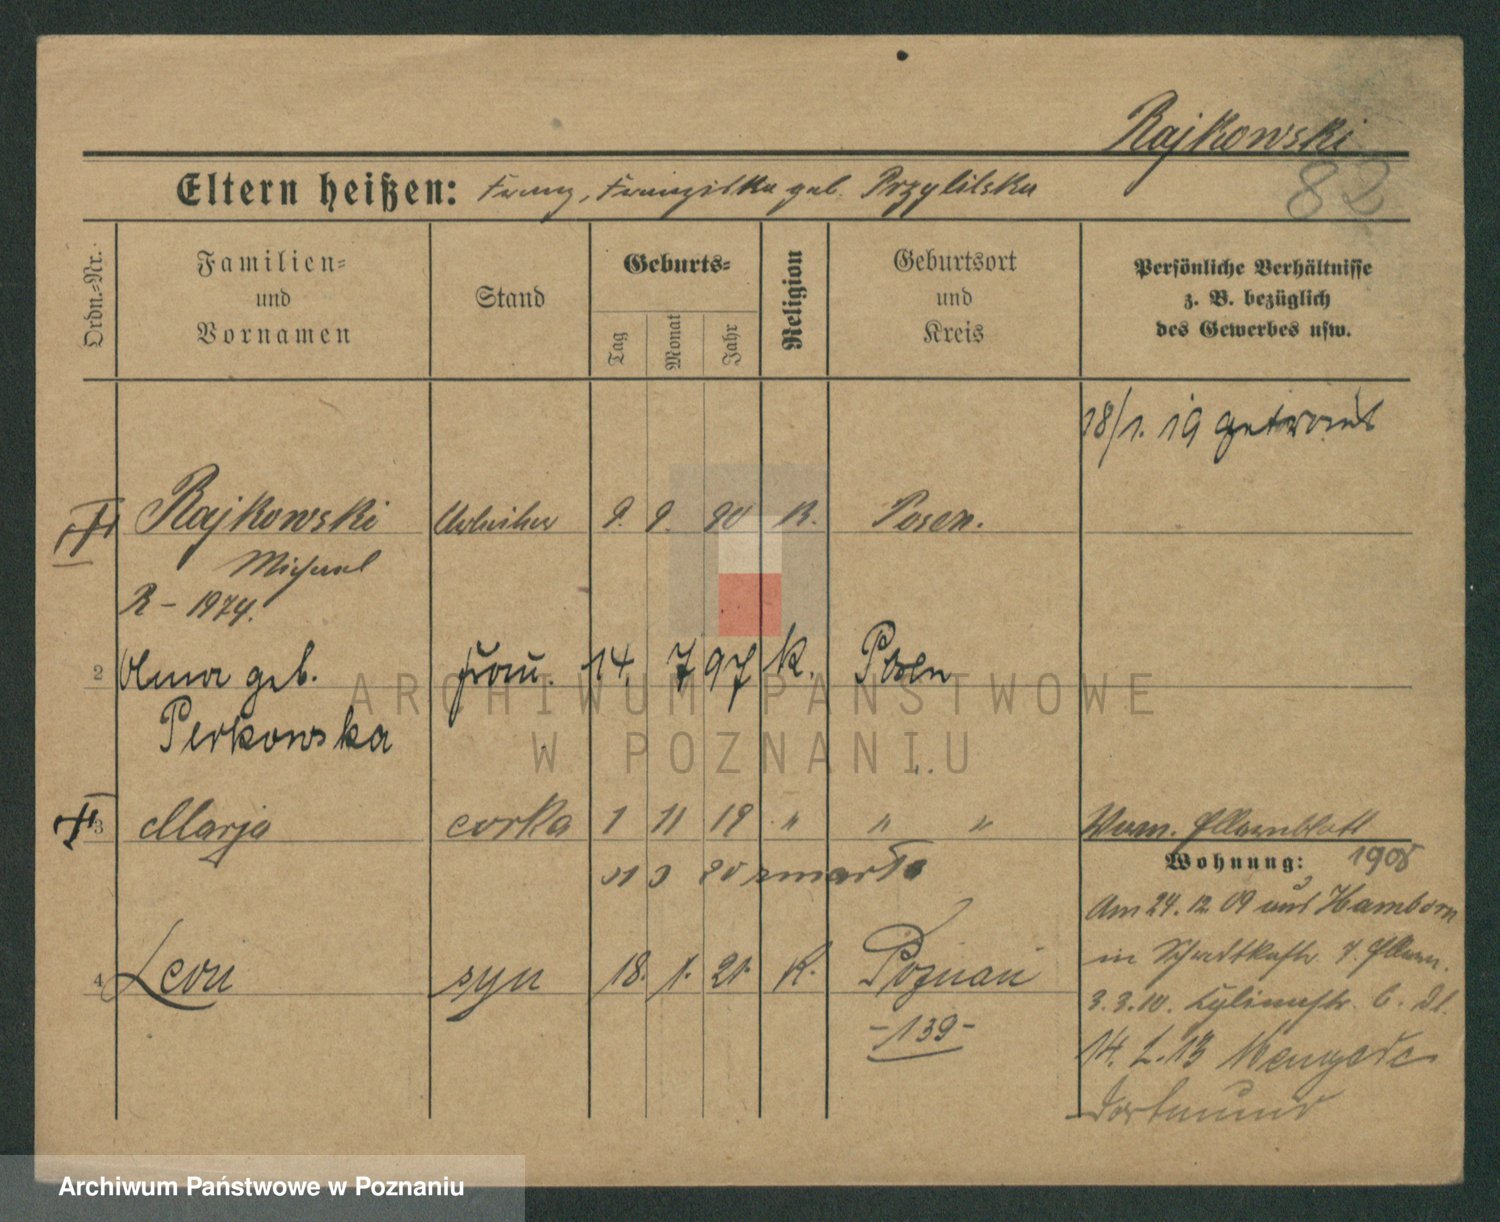 Rajkowski
82
Eltern heißen: Franz, Franziska geb. Przylilska
Ordn.-Nr.
Familien- und Vornamen
Stand
Geburts-
Tag
Monat
Jahr
Religion
Geburtsort und Kreis
Persönliche Verhältnisse
z. B. bezüglich
des Gewerbes usw.
18/1. 19 getraut
Rajkowski Arbeiter 9. 9. 90 K. Posen.
Michael
R - 1974.
2 geb. Frau. 14. 7 97 K. Posen
Perkowska
3 Marja corka 1 11 19 " " "
Vom. Elternblatt
31 3 20 zmarła
Wohnung: 1908
Am 24. 12 09 aus Hamborn
in 7. Eltern.
4 Leon syn 18. 1. 21. K. Poznań
3. 3. 10. 6.
- 139 -
14. 2. 13 Mengede
Dortmund
ARCHIWUM PAŃSTWOWE
W POZNANIU
Archiwum Państwowe w Poznaniu